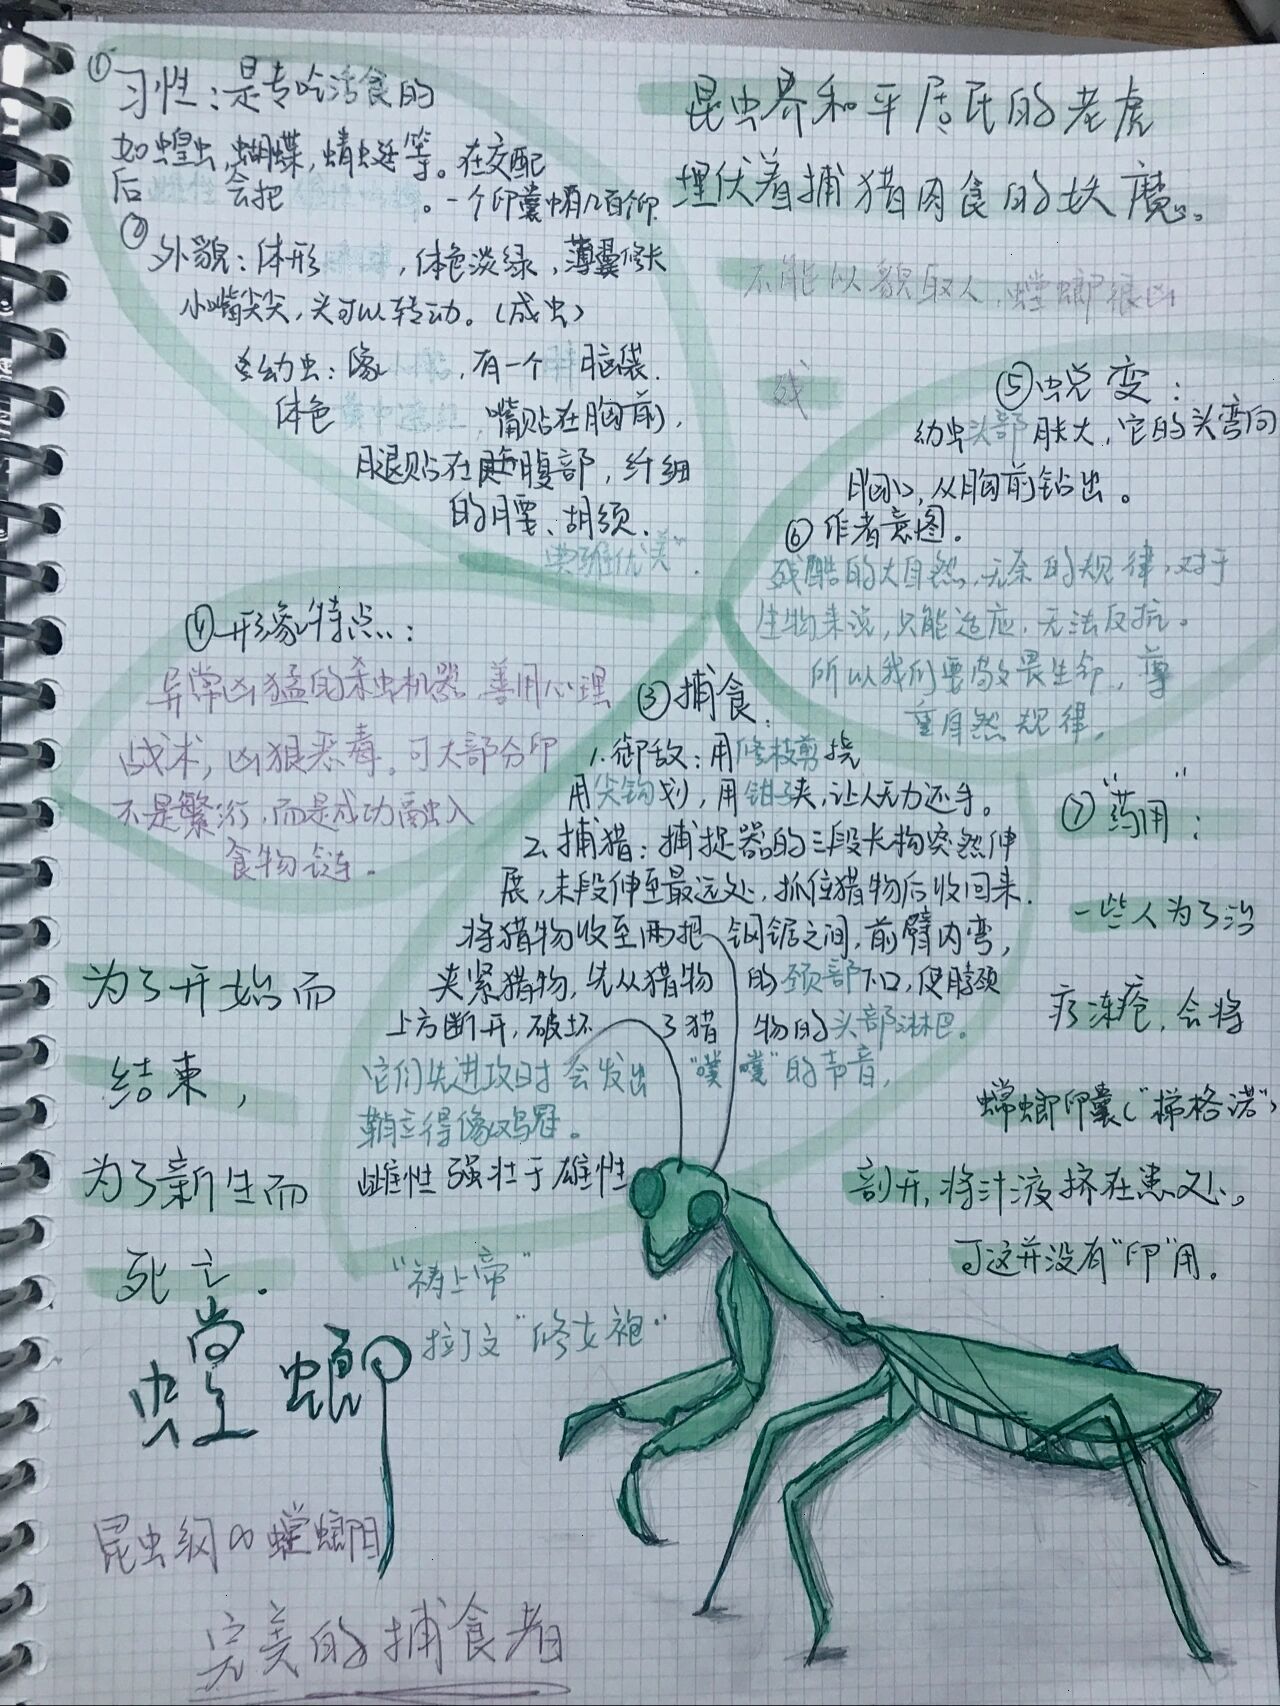 昆虫界和平居民的老虎
埋伏着捕猎肉食的妖魔。
不能以貌取人,螳螂很凶
残
① 习性:是专吃活食的
如蝗虫,蝴蝶,蜻蜓等。在交配
后 会把 。一个卵囊中有几百个卵
② 外貌:体形 ,体色淡绿,薄翼修长
小嘴尖尖,头可以转动。(成虫)
幼虫:像 ,有一个 脑袋.
体色 ,嘴贴在胸前,
腿贴在腹部,纤细
的腰、胡须.
"典雅优美".
④ 形象特点:
异常凶猛的杀虫机器 善用心理
战术,凶狠恶毒。可大部分卵
不是繁衍,而是成功融入
食物链。
③ 捕食:
1.御敌:用修枝剪挠
用尖钩划,用钳子夹,让人无力还手。
2.捕猎:捕捉器的三段长构突然伸
展,末段伸至最远处,抓住猎物后收回来.
将猎物收至两把 钢锯之间,前臂内弯,
夹紧猎物,先从猎物 的颈部下口,使脖颈
上方断开,破坏 了猎 物的头部淋巴。
它们先进攻时会发出 "噗噗"的声音,
鞘立得像鸡冠。
雌性强壮于雄性
⑤ 蜕变:
幼虫头部胀大,它的头弯向
胸口,从胸前钻出。
⑥ 作者意图。
残酷的大自然,无奈的规律,对于
生物来说,只能适应,无法反抗。
所以我们要敬畏生命,尊
重自然规律,
⑦ "药用":
一些人为了治
疗冻疮,会将
螳螂卵囊("梯格诺")
剖开,将汁液挤在患处。
可这并没有"卵"用。
为了开始而
结束,
为了新生而
死亡.
"祷上帝"
拉丁文"修女袍"
螳螂
昆虫纲∞螳螂目
完美的捕食者